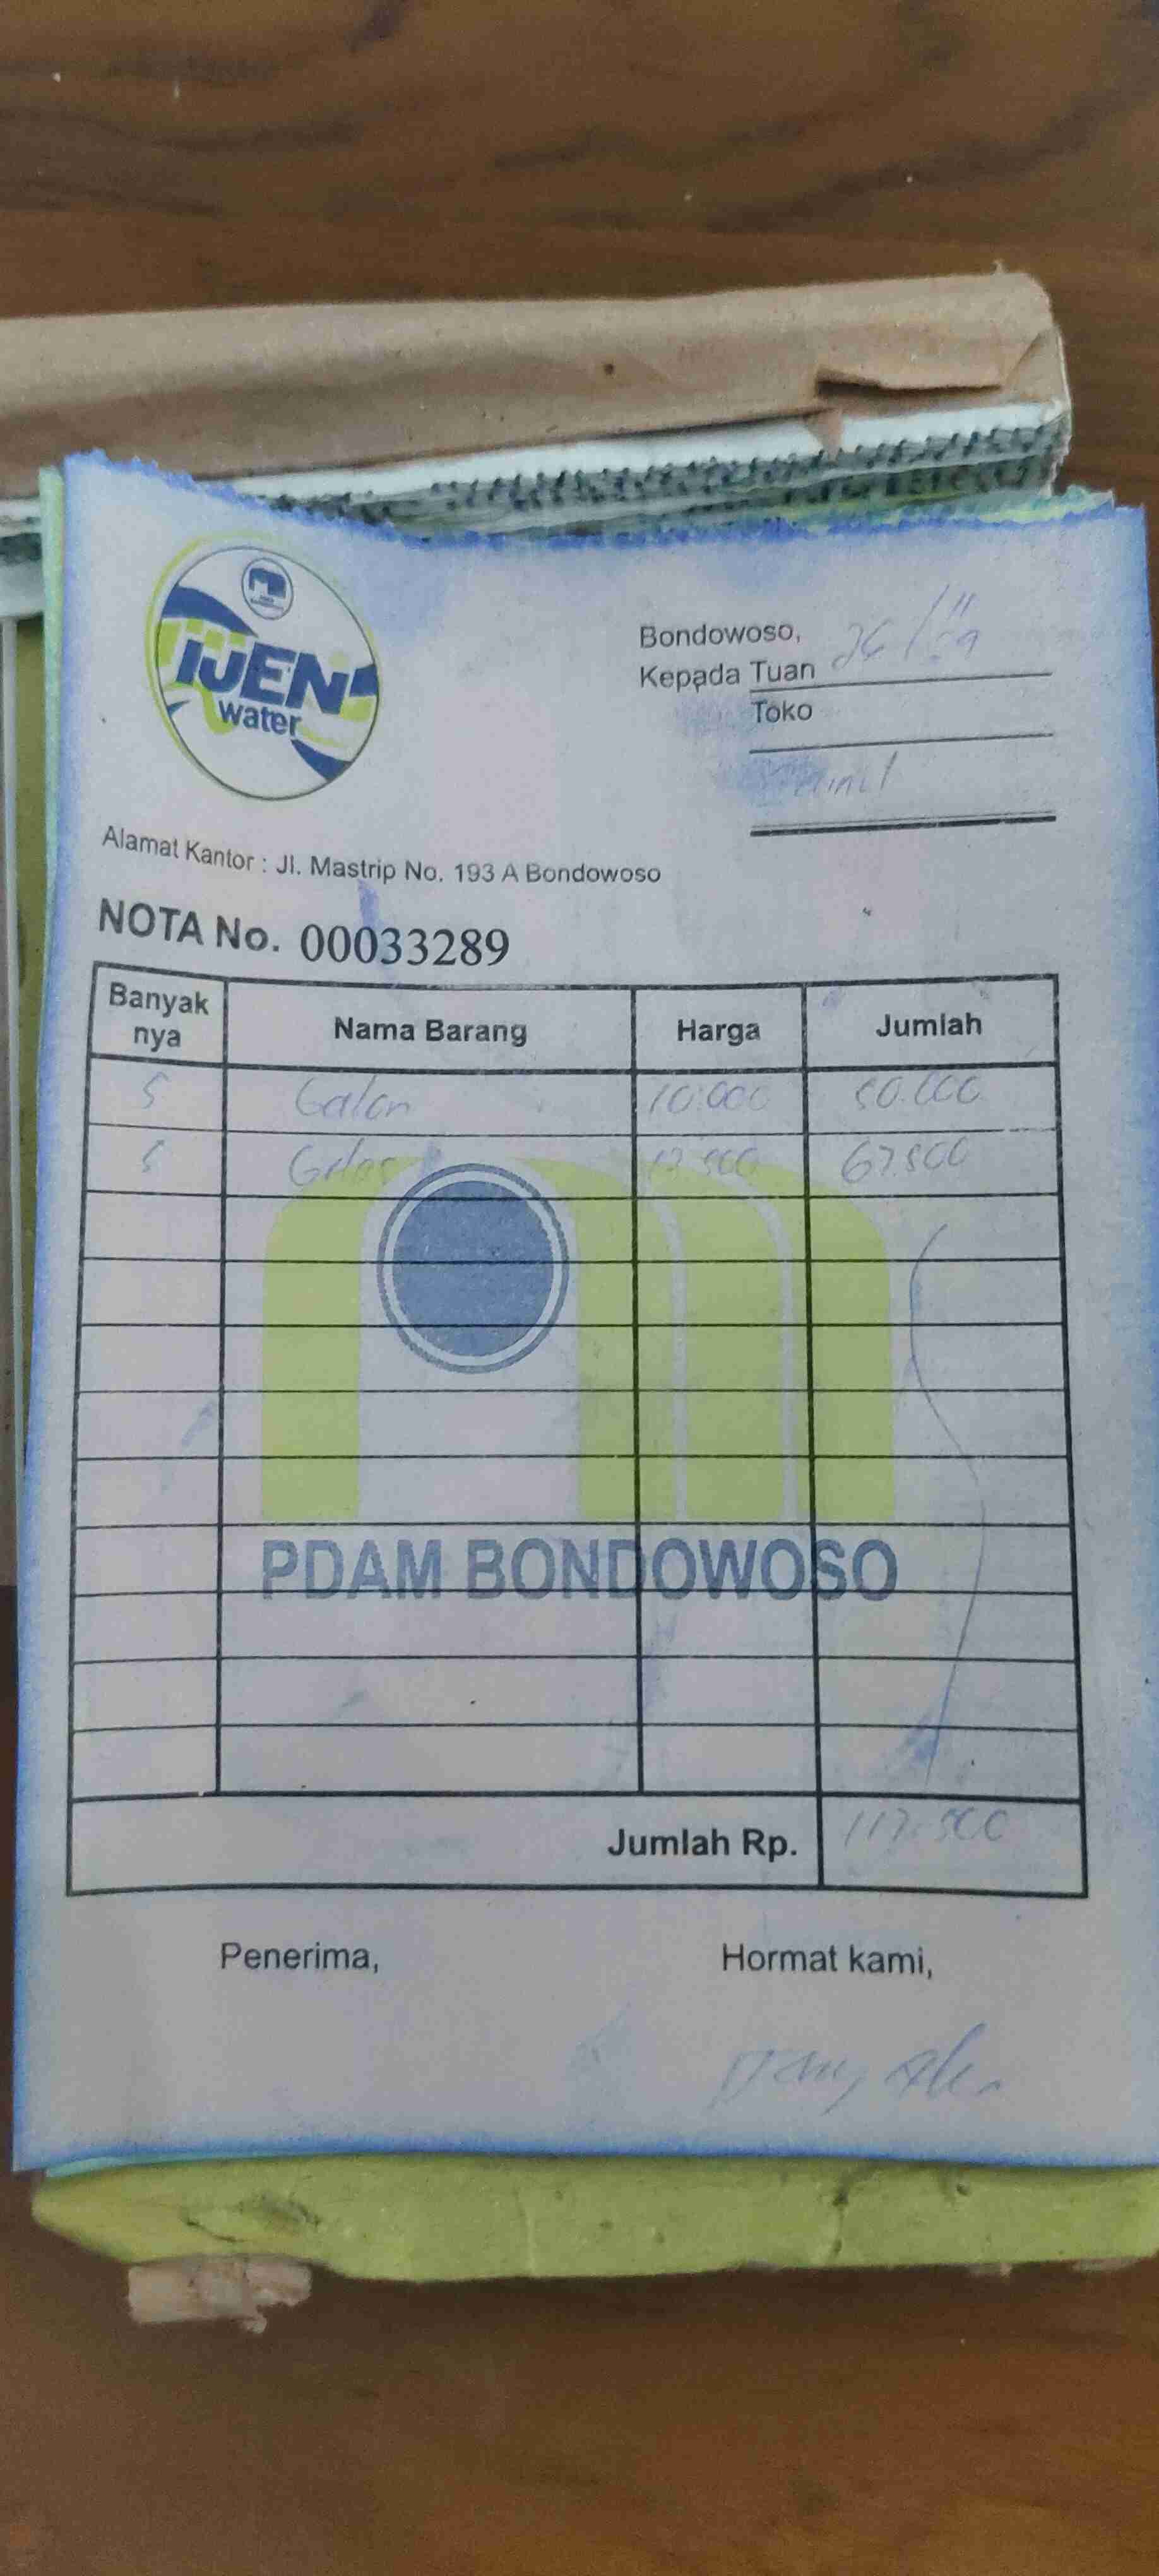 IJEN
water
Bondowoso, 26/11
Kepada Tuan
Toko
Alamat Kantor : Jl. Mastrip No. 193 A Bondowoso
NOTA No. 00033289
Banyak nya Nama Barang Harga Jumlah
5 Galon 10.000 50.000
5 Gelas 13.500 67.500
PDAM BONDOWOSO
Jumlah Rp. 117.500
Penerima, Hormat kami,